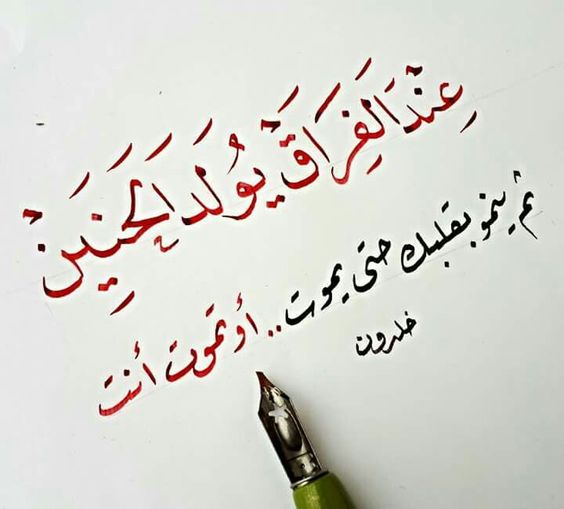 عِنْدَ الفِرَاقْ يُولَدَ الحَنِينْ
ثم ينمو بقلبك حتى يموت.. أو تموت أنت
خلدون